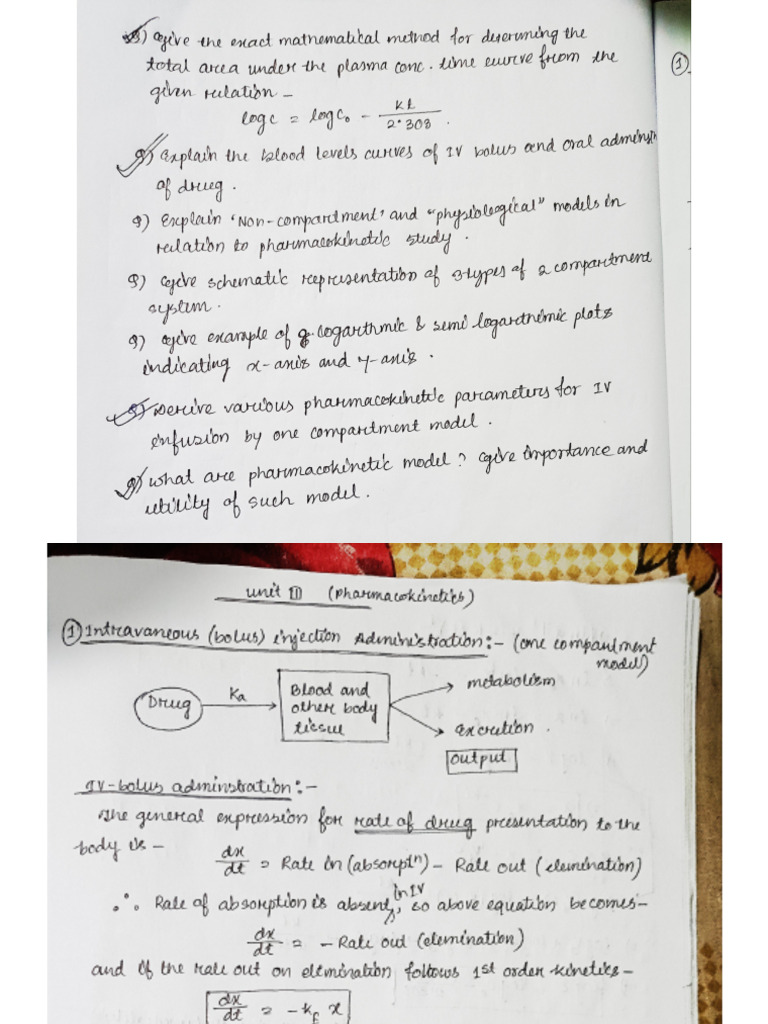 Q) Give the exact mathematical method for determing the
total area under the plasma conc. time curve from the
given relation -
log c = log c₀ - Kt / 2.308 .
Q) Explain the blood levels curves of IV bolus and oral adminstn
of drug .
Q) Explain 'Non-compartment' and "physiological" models in
relation to pharmacokinetic study .
Q) Give schematic representation of 3 types of 2 compartment
system .
Q) Give example of logarthmic & semi logarthimic plots
indicating x-axis and y-axis .
Q) Derive various pharmacokinetic parameters for IV
infusion by one compartment model .
Q) What are pharmacokinetic model ? Give importance and
utility of such model .
①
Unit III (pharmacokinetics)
① Intravaneous (bolus) injection Administration :- (one compartment
model)
Drug
Ka
Blood and
other body
tissue
metabolism
excretion .
output
IV-bolus adminstration :-
The general expression for rate of drug presentation to the
body is -
dx/dt = Rate in (absorptⁿ) - Rate out (elemination)
∴ Rate of absorption is absent in IV, so above equation becomes -
dx/dt = - Rate out (elemination)
and if the rate out on elemination follows 1st order kinetics -
dx/dt = - k_E x